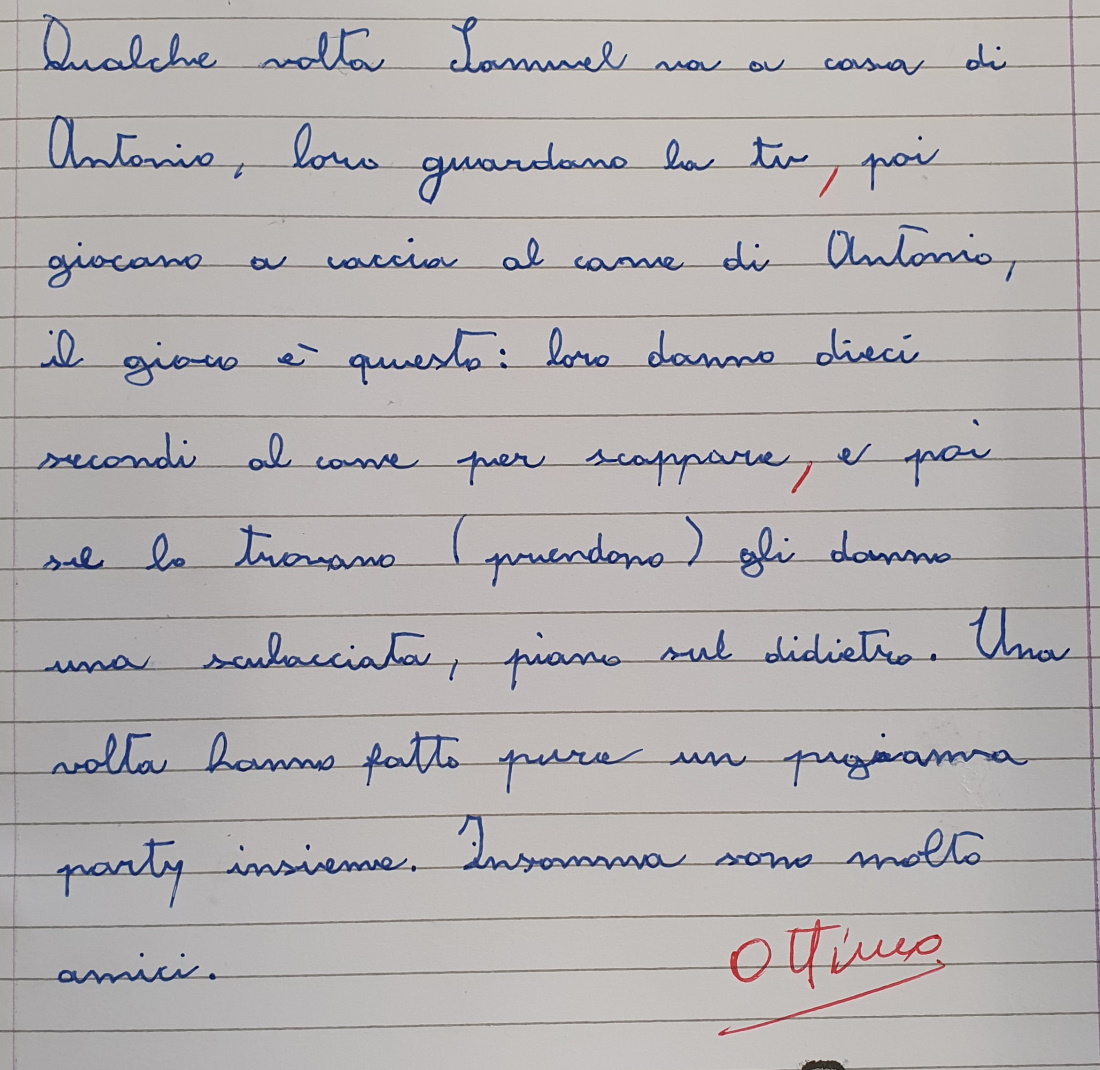 Qualche volta Samuel va a casa di
Antonio, loro guardano la tv, poi
giocano a caccia al cane di Antonio,
il gioco è questo: loro danno dieci
secondi al cane per scappare, e poi
se lo trovano (prendono) gli danno
una sculacciata, piano sul didietro. Una
volta hanno fatto pure un pigiama
party insieme. Insomma sono molto
amici.
Ottimo